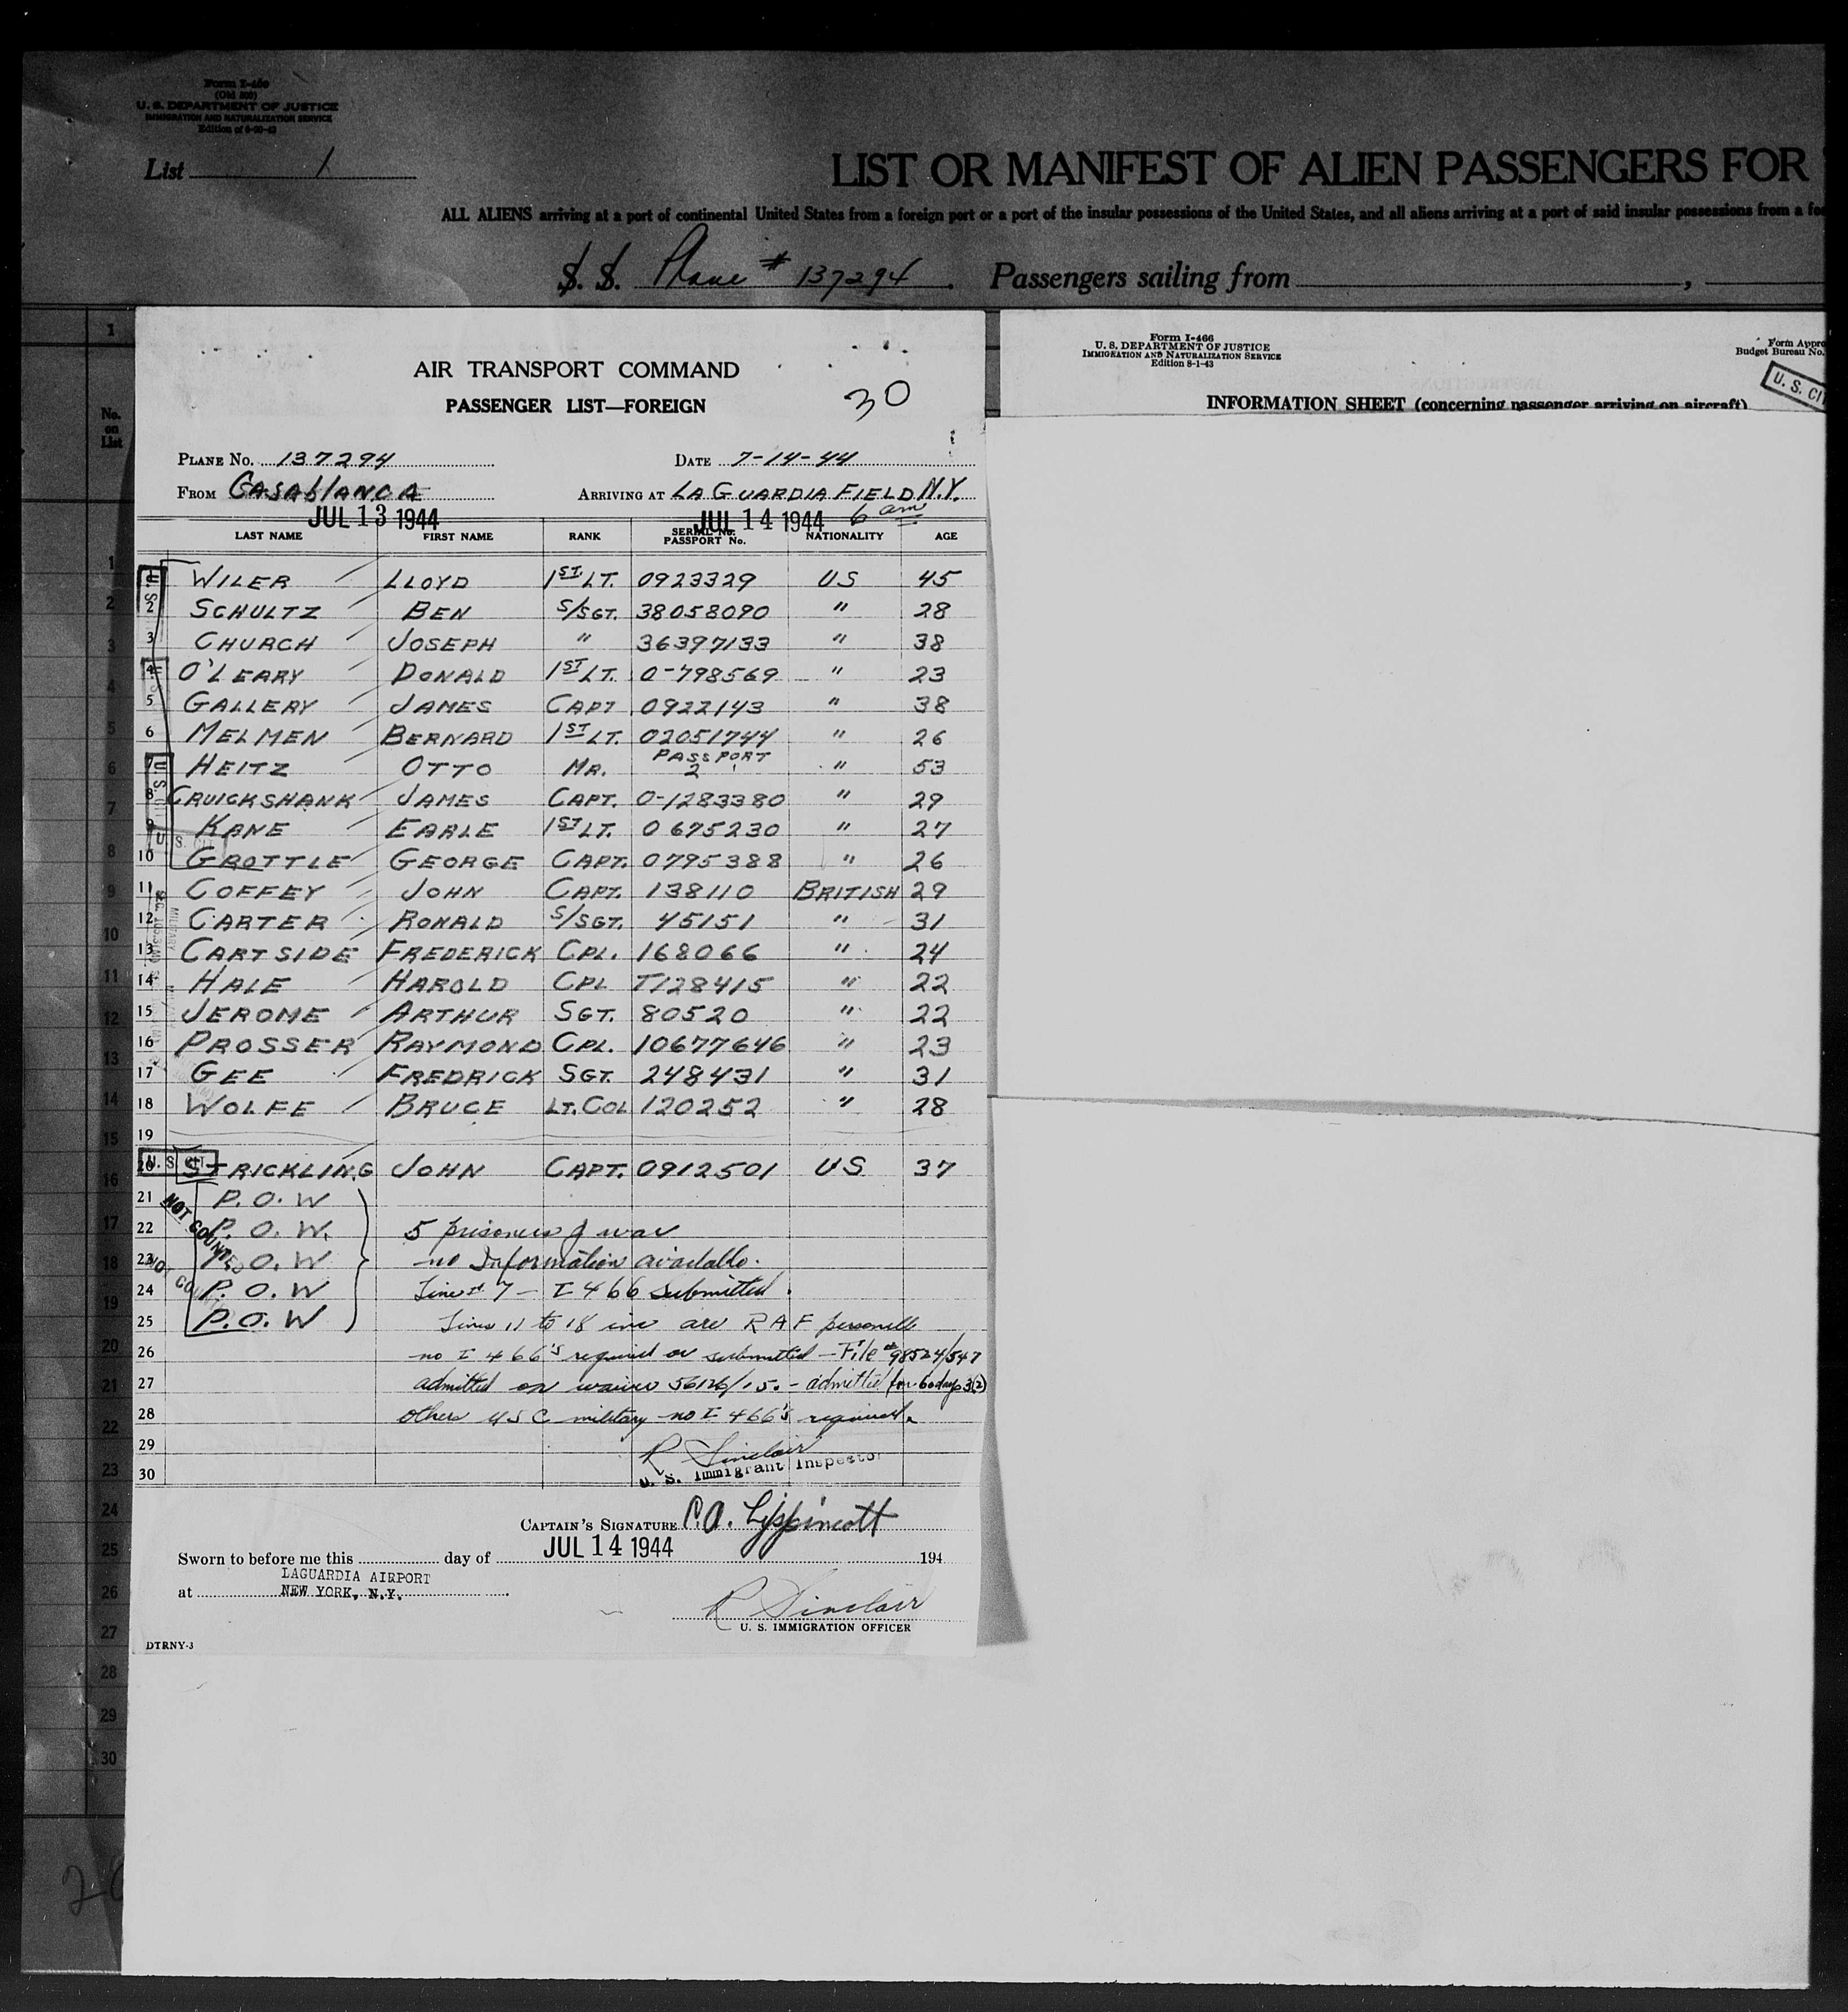 Form I-466
(Old 500)
U. S. DEPARTMENT OF JUSTICE
IMMIGRATION AND NATURALIZATION SERVICE
List 1
LIST OR MANIFEST OF ALIEN PASSENGERS FOR
ALL ALIENS arriving at a port of continental United States from a foreign port or a port of the insular possessions of the United States, and all aliens arriving at a port of said insular possessions from a
S. S. Plane # 137294. Passengers sailing from ,
Form I-466
U. S. DEPARTMENT OF JUSTICE
IMMIGRATION AND NATURALIZATION SERVICE
Edition 8-1-43
Form Appro
Budget Bureau No.
U. S. CI
INFORMATION SHEET (concerning passenger arriving on aircraft)
No. on List
AIR TRANSPORT COMMAND
PASSENGER LIST—FOREIGN
30
PLANE NO. 137294 DATE 7-14-44
FROM CASABLANCA ARRIVING AT LA GUARDIA FIELD N.Y.
JUL 13 1944 JUL 14 1944 6 am
LAST NAME FIRST NAME RANK SERIAL No. PASSPORT No. NATIONALITY AGE
1 WILER LLOYD 1ST LT. 0923329 US 45
2 SCHULTZ BEN S/SGT. 38058090 " 28
3 CHURCH JOSEPH " 36397133 " 38
4 O'LEARY DONALD 1ST LT. 0-798569 " 23
5 GALLERY JAMES CAPT 0922143 " 38
6 MELMEN BERNARD 1ST LT. 02051744 " 26
7 HEITZ OTTO MR. PASSPORT 2 " 53
8 CRUICKSHANK JAMES CAPT. 0-1283380 " 29
9 KANE EARLE 1ST LT. 0675230 " 27
10 GROTTLE GEORGE CAPT. 0795388 " 26
11 COFFEY JOHN CAPT. 138110 BRITISH 29
12 CARTER RONALD S/SGT. 45151 " 31
13 CARTSIDE FREDERICK CPL. 168066 " 24
14 HALE HAROLD CPL T/128415 " 22
15 JEROME ARTHUR SGT. 80520 " 22
16 PROSSER RAYMOND CPL. 10677646 " 23
17 GEE FREDRICK SGT. 248431 " 31
18 WOLFE BRUCE LT. COL 120252 " 28
19
20 STRICKLING JOHN CAPT. 0912501 US 37
U. S. CIT.
21 P. O. W
22 P. O. W. 5 prisoners of war
23 P. O. W no Information available.
24 P. O. W Line # 7 - I 466 submitted.
25 P. O. W Lines 11 to 18 inc are RAF personell
26 no I 466's required or submitted - File # 98524/547
27 admitted on waiver 56126/15. - admitted for 60 days 3(2)
28 others USC military no I 466's required.
29 R Sinclair
30 U. S. Immigrant Inspector
NOT COUNTED
CAPTAIN'S SIGNATURE P.A. Lippincott
Sworn to before me this day of JUL 14 1944 194
at LAGUARDIA AIRPORT
NEW YORK, N.Y.
R Sinclair
U. S. IMMIGRATION OFFICER
DTRNY-3